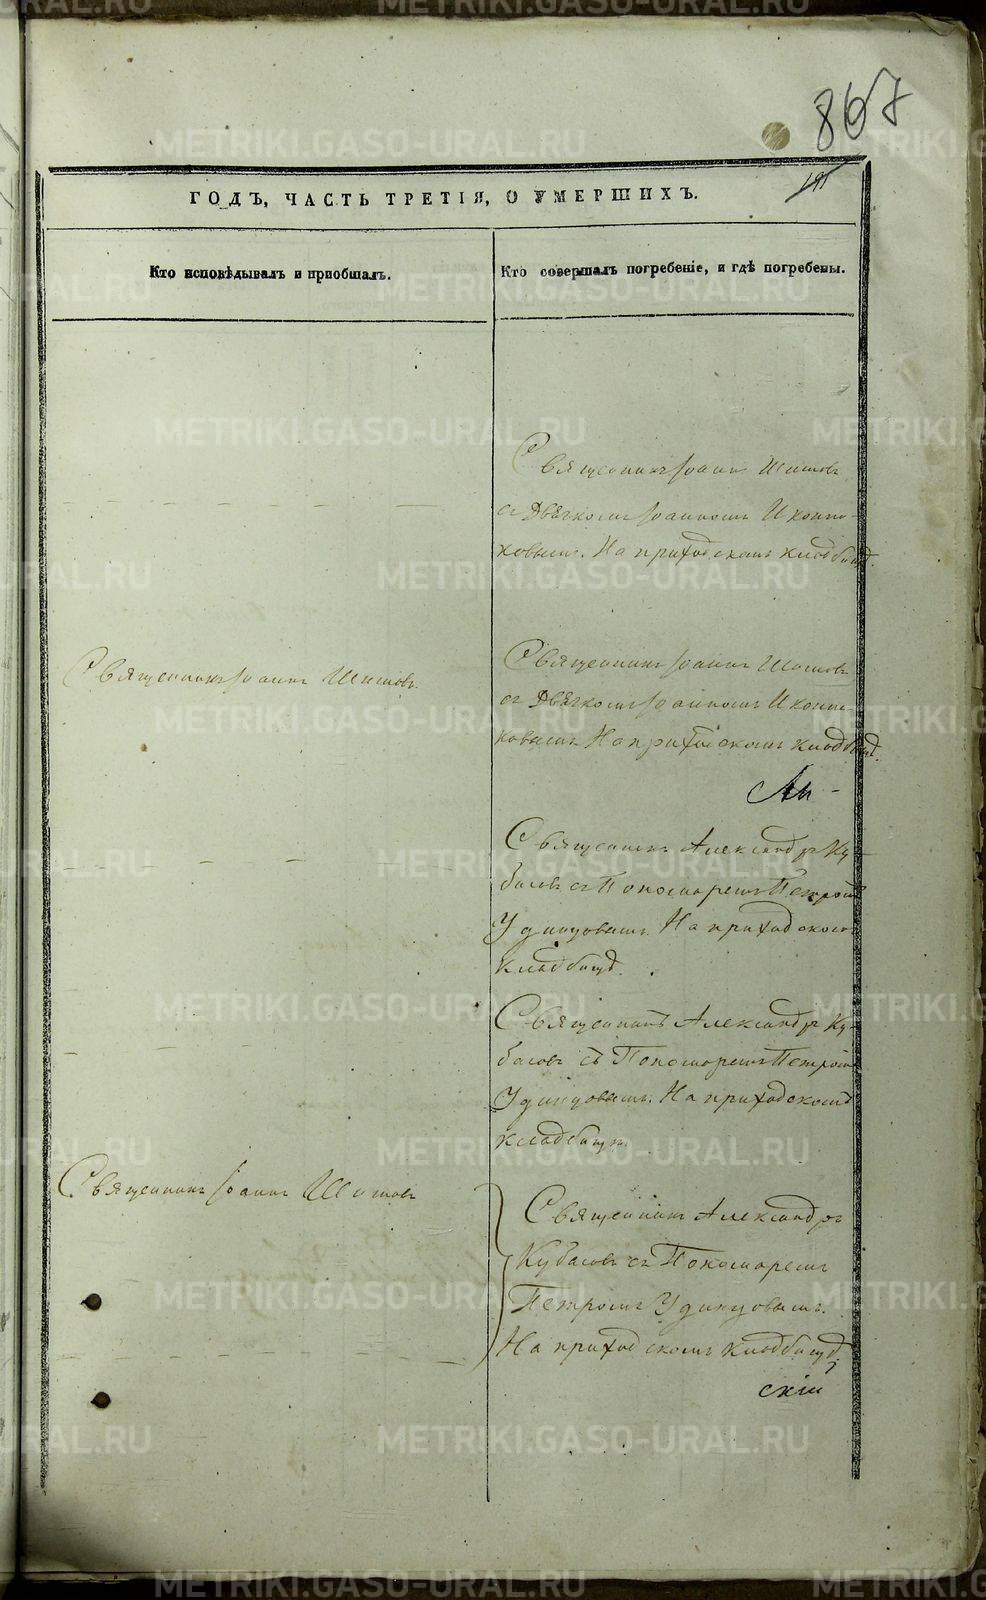 867
191
ГОДЪ, ЧАСТЬ ТРЕТІЯ, О УМЕРШИХЪ.
Кто исповѣдывалъ и пріобщалъ.
Кто совершалъ погребеніе, и гдѣ погребены.
Священникъ Іоаннъ Шишовъ
съ Дьячкомъ Іоанномъ Иконни-
ковымъ. На приходскомъ кладбищѣ.
Священникъ Іоаннъ Шишовъ.
Священникъ Іоаннъ Шишовъ
съ Дьячкомъ Іоанномъ Иконни-
ковымъ На приходскомъ кладбищѣ.
Священникъ Александръ Ку-
басовъ съ Пономаремъ Петромъ
Удинцовымъ. На приходскомъ
кладбищѣ.
Священникъ Александръ Ку-
басовъ съ Пономаремъ Петромъ
Удинцовымъ. На приходскомъ
кладбищѣ.
Священникъ Іоаннъ Шишовъ
Священникъ Александръ
Кубасовъ съ Пономаремъ
Петромъ Удинцовымъ.
На приходскомъ кладбищѣ.
скій
METRIKI.GASO-URAL.RU